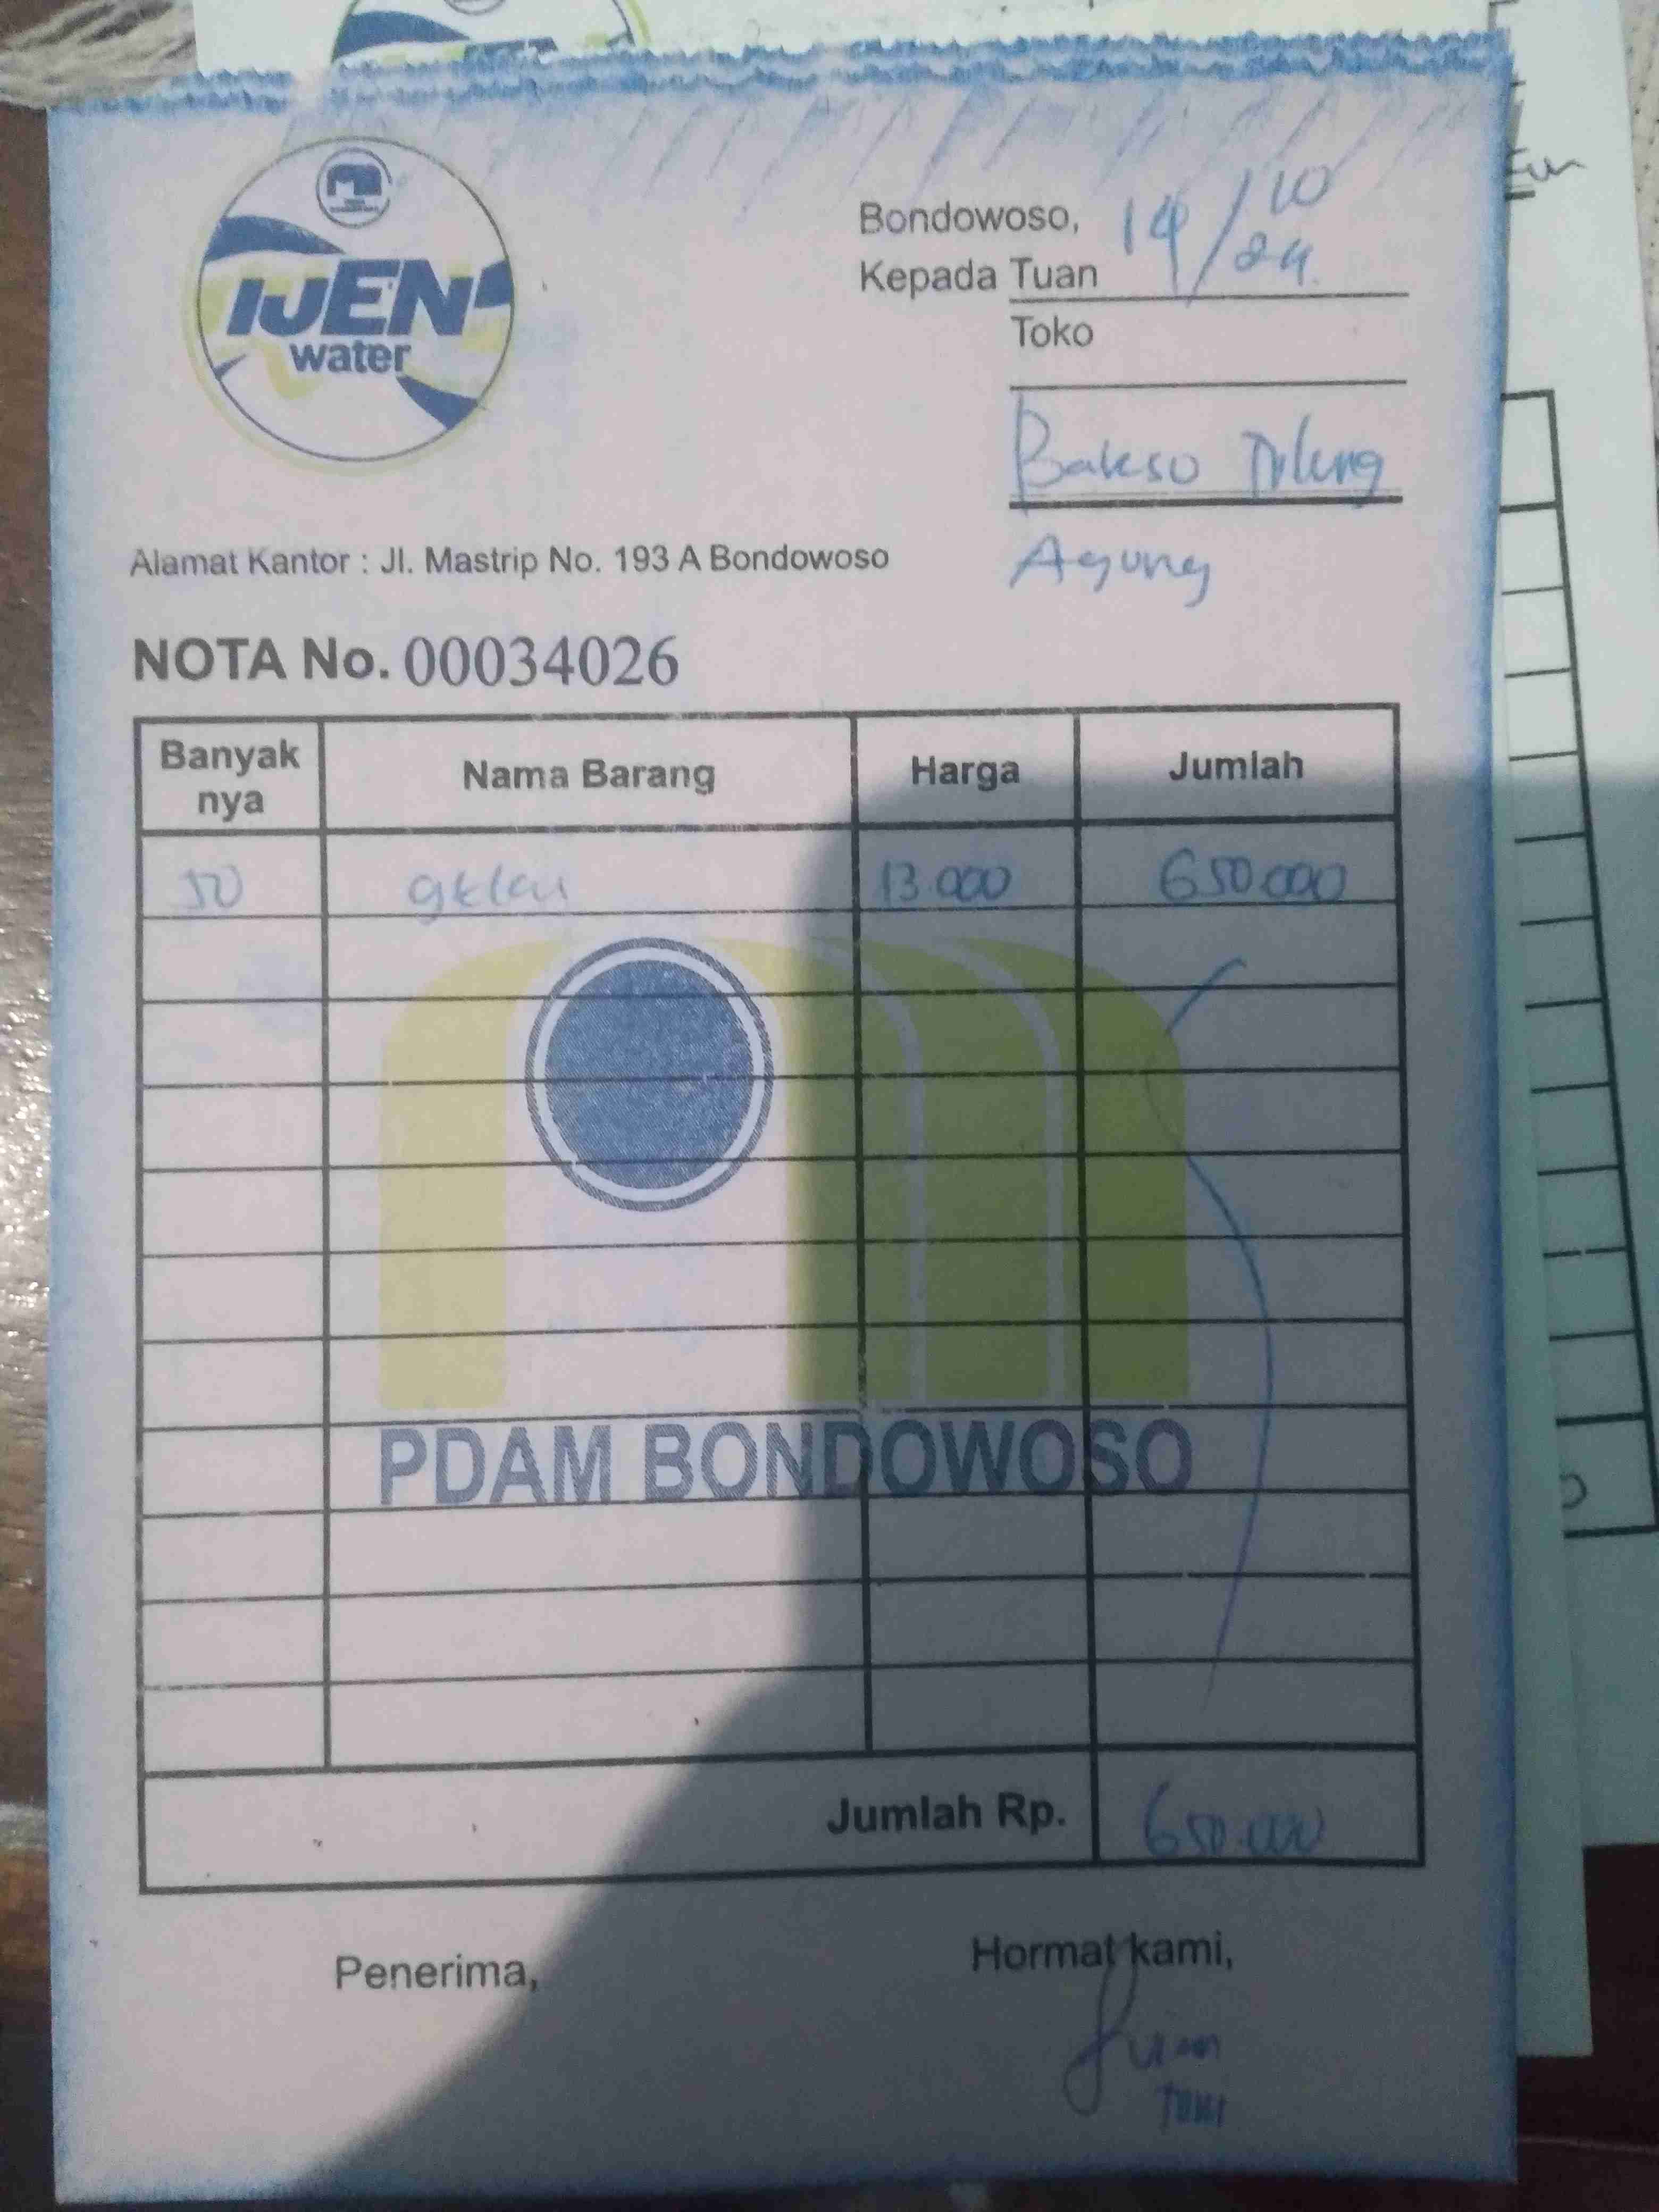 IJEN
water
Bondowoso, 14/10
24
Kepada Tuan
Toko
Bakso
Agung
Alamat Kantor : Jl. Mastrip No. 193 A Bondowoso
NOTA No. 00034026
Banyak nya Nama Barang Harga Jumlah
50 13.000 650.000
PDAM BONDOWOSO
Jumlah Rp. 650.000
Penerima, Hormat kami,